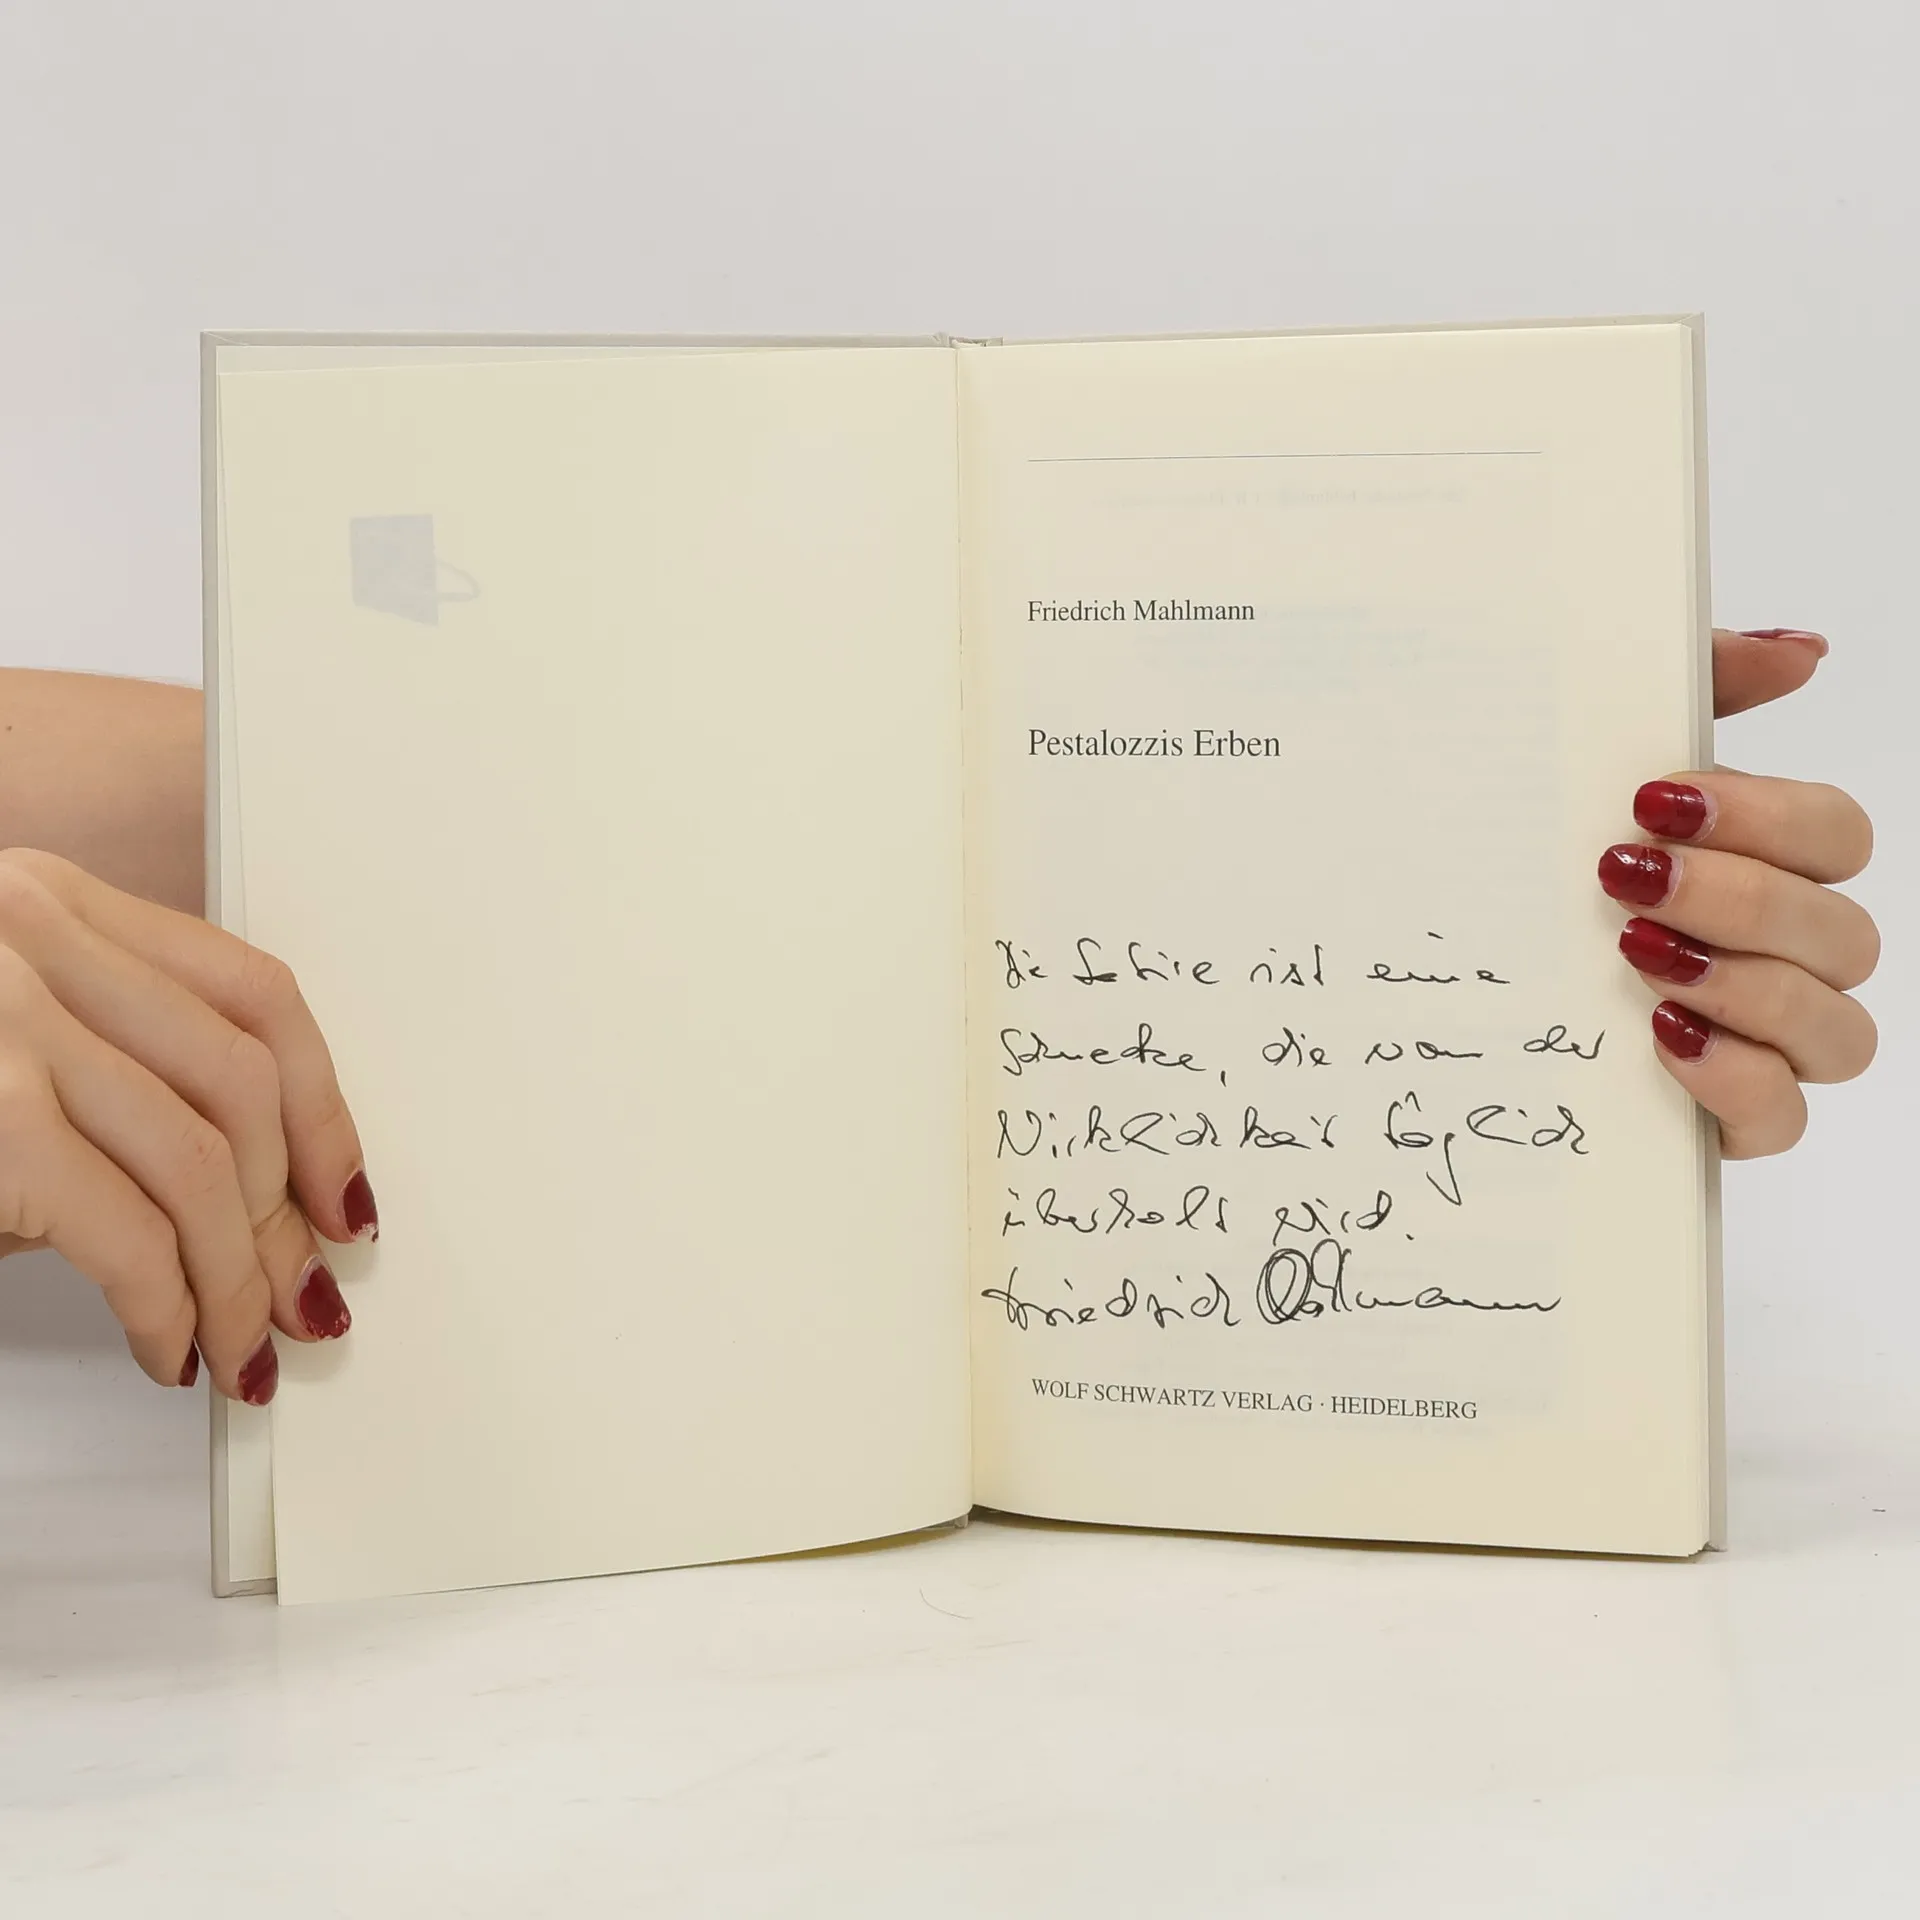 Friedrich Mahlmann
Pestalozzis Erben
Die Satire ist eine
Schnecke, die von der
Wirklichkeit täglich
überholt wird.
Friedrich Mahlmann
WOLF SCHWARTZ VERLAG · HEIDELBERG